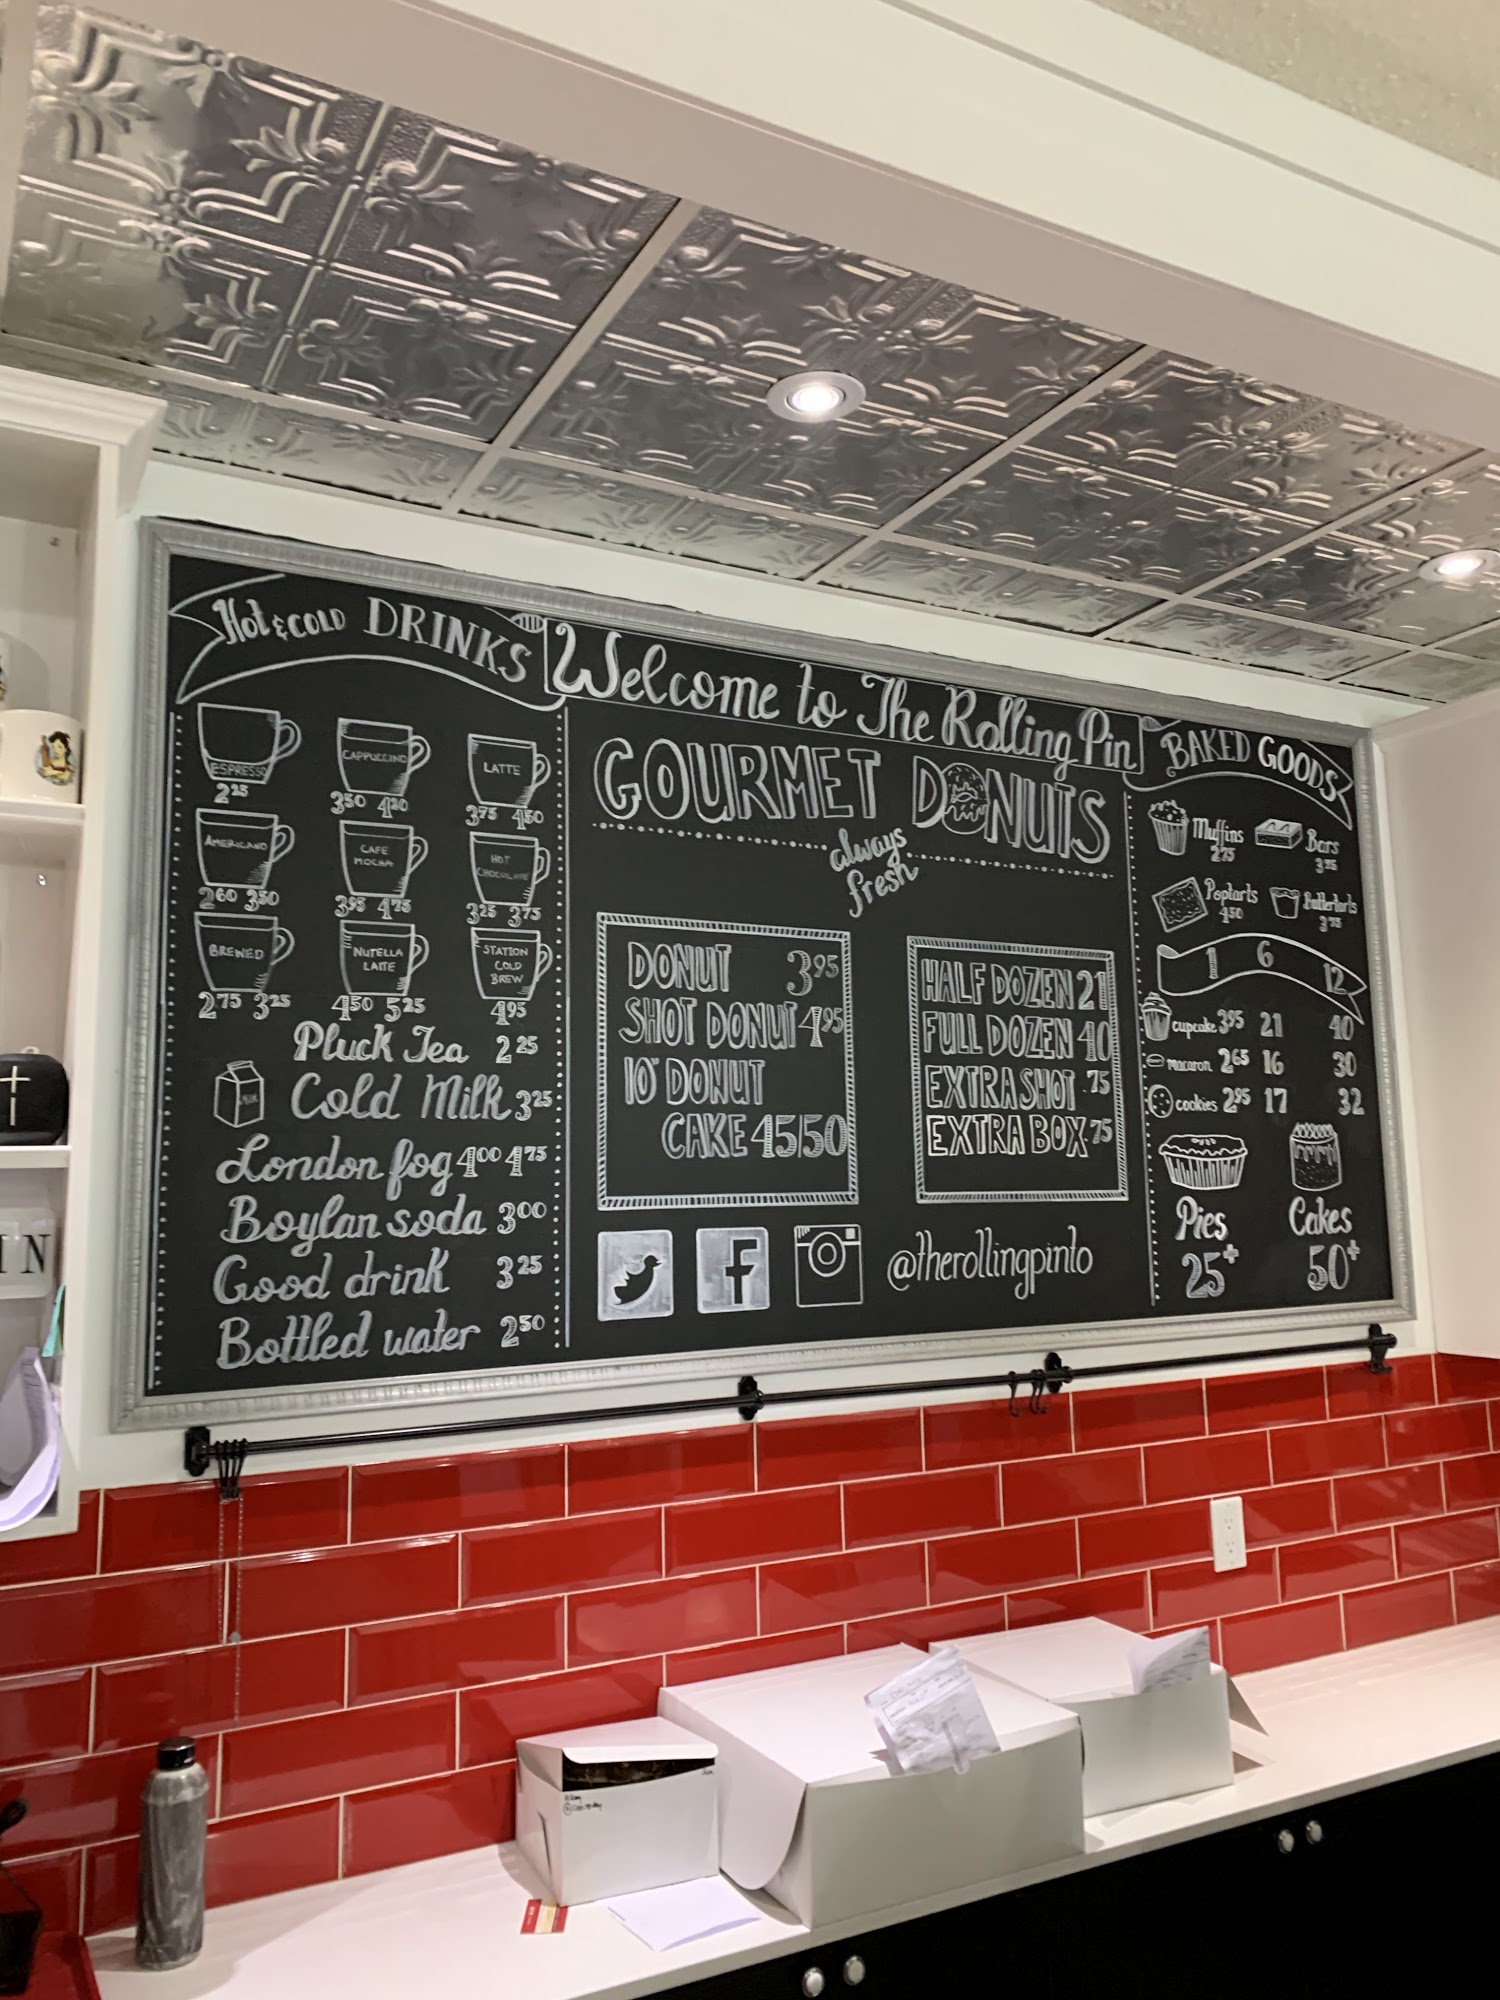 Hot & COLD DRINKS
ESPRESSO
2 25
CAPPUCCINO
3 50 4 20
LATTE
3 75 4 50
AMERICANO
2 60 3 50
CAFE
MOCHA
3 95 4 75
HOT
CHOCOLATE
3 25 3 75
BREWED
2 75 3 25
NUTELLA
LATTE
4 50 5 25
STATION
COLD
BREW
4 95
Pluck Tea 2 25
Cold Milk 3 25
London fog 4 00 4 75
Boylan soda 3 00
Good drink 3 25
Bottled water 2 50
Welcome to The Rolling Pin
GOURMET DONUTS
always
fresh
DONUT 3 95
SHOT DONUT 4 95
10" DONUT
CAKE 45/50
HALF DOZEN 21
FULL DOZEN 40
EXTRA SHOT .75
EXTRA BOX .75
f
@therollingpinto
BAKED GOODS
Muffins
2 75
Bars
Poptarts
4 50
Buttertarts
1 6 12
cupcake 3 95 21 40
macaron 2 65 16 30
cookies 2 95 17 32
Pies
25+
Cakes
50+
IN